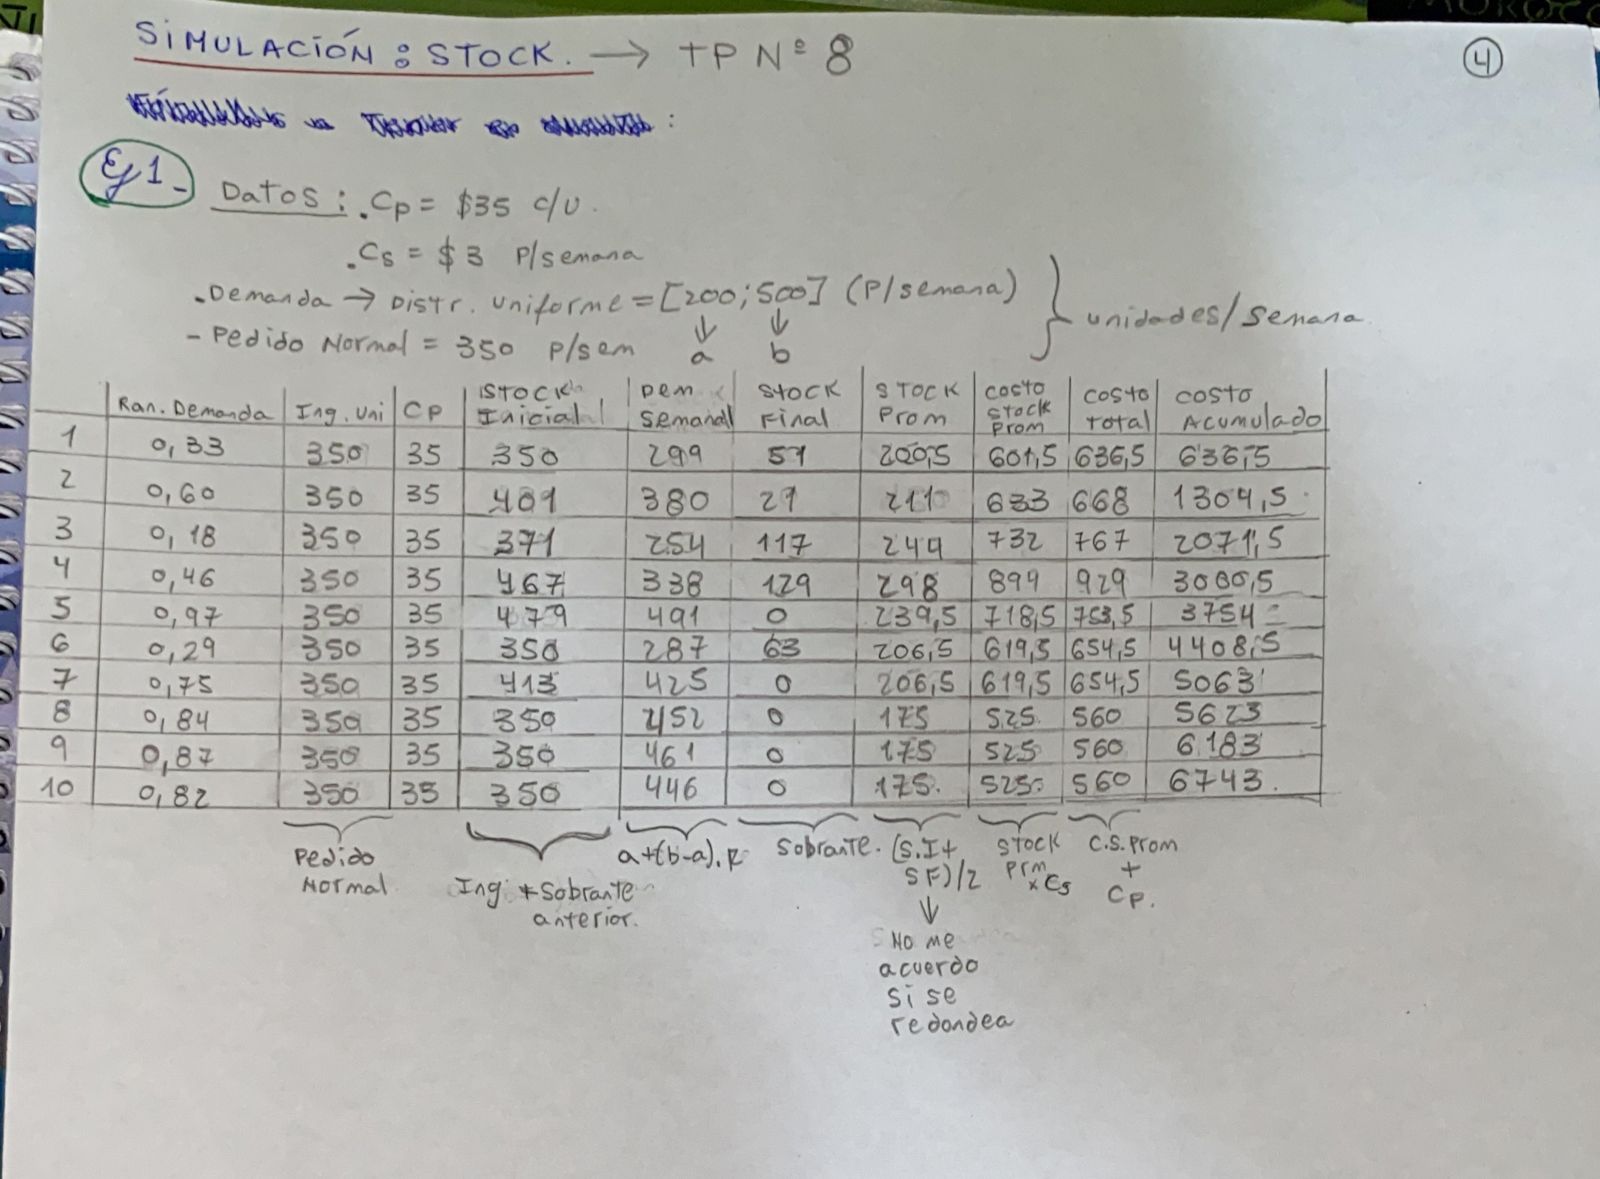 SIMULACIÓN: STOCK. → TP Nº 8
4
Ej 1-
Datos: .Cp = $35 c/u.
.Cs = $3 p/semana
.Demanda → Distr. uniforme = [200;500] (p/semana)
- Pedido Normal = 350 p/sem
a b
unidades/semana.
Ran. Demanda | Ing. Uni | CP | STOCK Inicial | Dem Semanal | STOCK Final | STOCK Prom | COSTO STOCK Prom | COSTO TOTAL | COSTO ACUMULADO
1 0,33 350 35 350 299 51 200,5 601,5 636,5 636,5
2 0,60 350 35 401 380 21 211 633 668 1304,5
3 0,18 350 35 371 254 117 244 732 767 2071,5
4 0,46 350 35 467 338 129 298 894 929 3000,5
5 0,97 350 35 479 491 0 239,5 718,5 753,5 3754
6 0,29 350 35 350 287 63 206,5 619,5 654,5 4408,5
7 0,75 350 35 413 425 0 206,5 619,5 654,5 5063
8 0,84 350 35 350 452 0 175 525 560 5623
9 0,87 350 35 350 461 0 175 525 560 6183
10 0,82 350 35 350 446 0 175. 525 560 6743.
Pedido
Normal
Ing + Sobrante
anterior.
a+(b-a).R
Sobrante.
(S.I+
SF)/2
STOCK
Prm
x Cs
C.S.Prom
+
Cp.
No me
acuerdo
si se
redondea